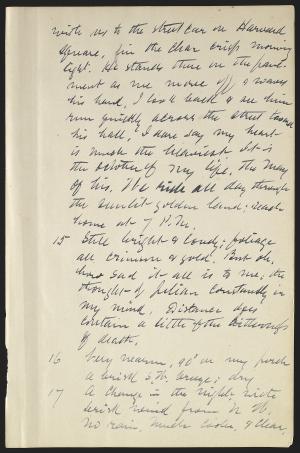 with us to the street car on Harvard
Square, in the clear crisp morning
light. He stands there on the pave-
ment as we move off & waves
his hand, I look back & see him
run quickly across the street toward
his hall. I dare say my heart
is much the heaviest. It is
the October of my life, the May
of his. We ride all day through
the sunlit golden land; reach
home at 7 P.M.
15 Still bright & lovely; foliage
all crimson & gold. But oh,
how sad it all is to me; the
thought of Julian constantly in
my mind. Distance does
contain a little of the bitterness
of death.
16 Very warm, 90° on my porch
a brisk S.W. breeze; dry
17 A change in the night;
brisk wind from N.W.
No rain, much cooler, & clear,